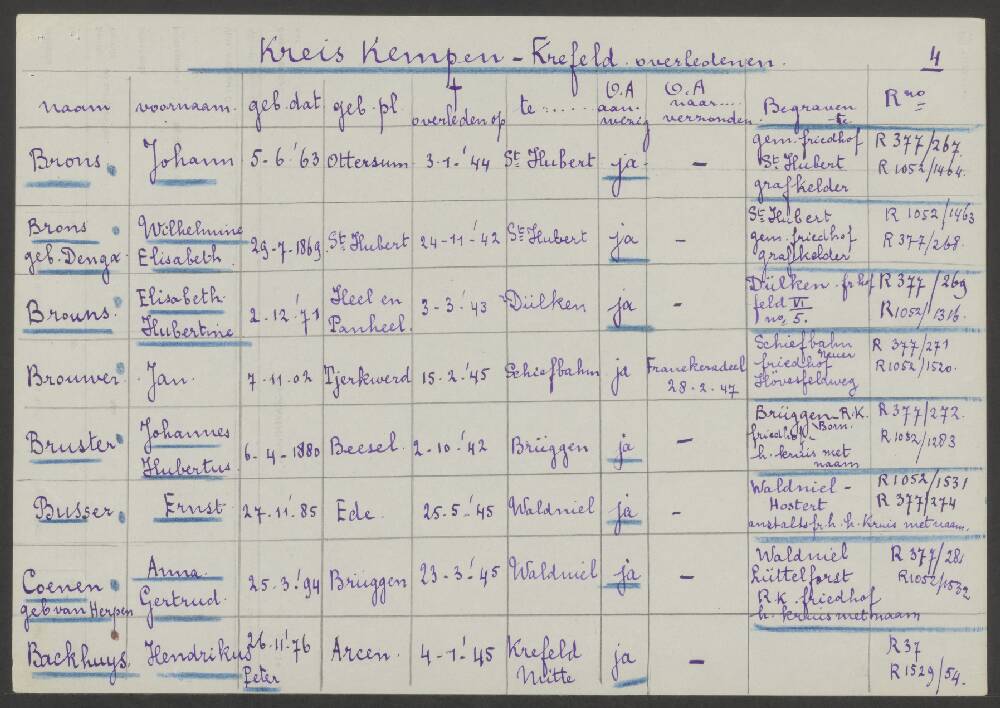 Kreis Kempen - Krefeld. overledenen. 4
naam voornaam. geb. dat geb. pl † overleden op te ...... O.A aanwezig O.A naar.... verzonden. Begraven te R no
Brons. Johann 5-6-'63 Ottersum 3-1-'44 St Hubert ja - gem. friedhof St Hubert grafkelder R 377/267. R 1052/1464.
Brons geb. Denga. Wilhelmine Elisabeth. 29-7-1869. St Hubert 24-11-'42 St Hubert ja - St Hubert gem. friedhof grafkelder R 1052/1463 R 377/268.
Brouns. Elisabeth Hubertine 2-12-'71 Heel en Panheel. 3-3-'43 Dülken ja - Dülken. fr. hof feld VI no. 5. R 377/269 R 1052/1316.
Brouwer. Jan. 7-11-02 Tjerkwerd 15-2-'45 Schiefbahn ja Franekeradeel 28-2-47 Schiefbahn friedhof Neuer Hövesfeldweg R 377/271 R 1052/1520.
Bruster Johannes Hubertus. 6-4-1880 Beesel. 2-10-'42 Brüggen ja - Brüggen-R.K. Born. friedhof h. kruis met naam R 377/272. R 1052/1283
Busser. Ernst. 27-11-'85 Ede. 25-5-'45 Waldniel ja - Waldniel - Hostert anstaltsfr. h. h. Kruis met naam. R 1052/1531 R 377/274
Coenen geb van Herpen Anna. Gertrud. 25-3-'94 Bruggen 23-3-'45 Waldniel ja - Waldniel Lüttelforst R.K. friedhof h. kruis met naam R 377/281 R 1052/1532
Backhuys. Hendrikus Peter 26-11-'76 Arcen. 4-1-'45 Krefeld Mitte ja - R 37 R 1529/54.